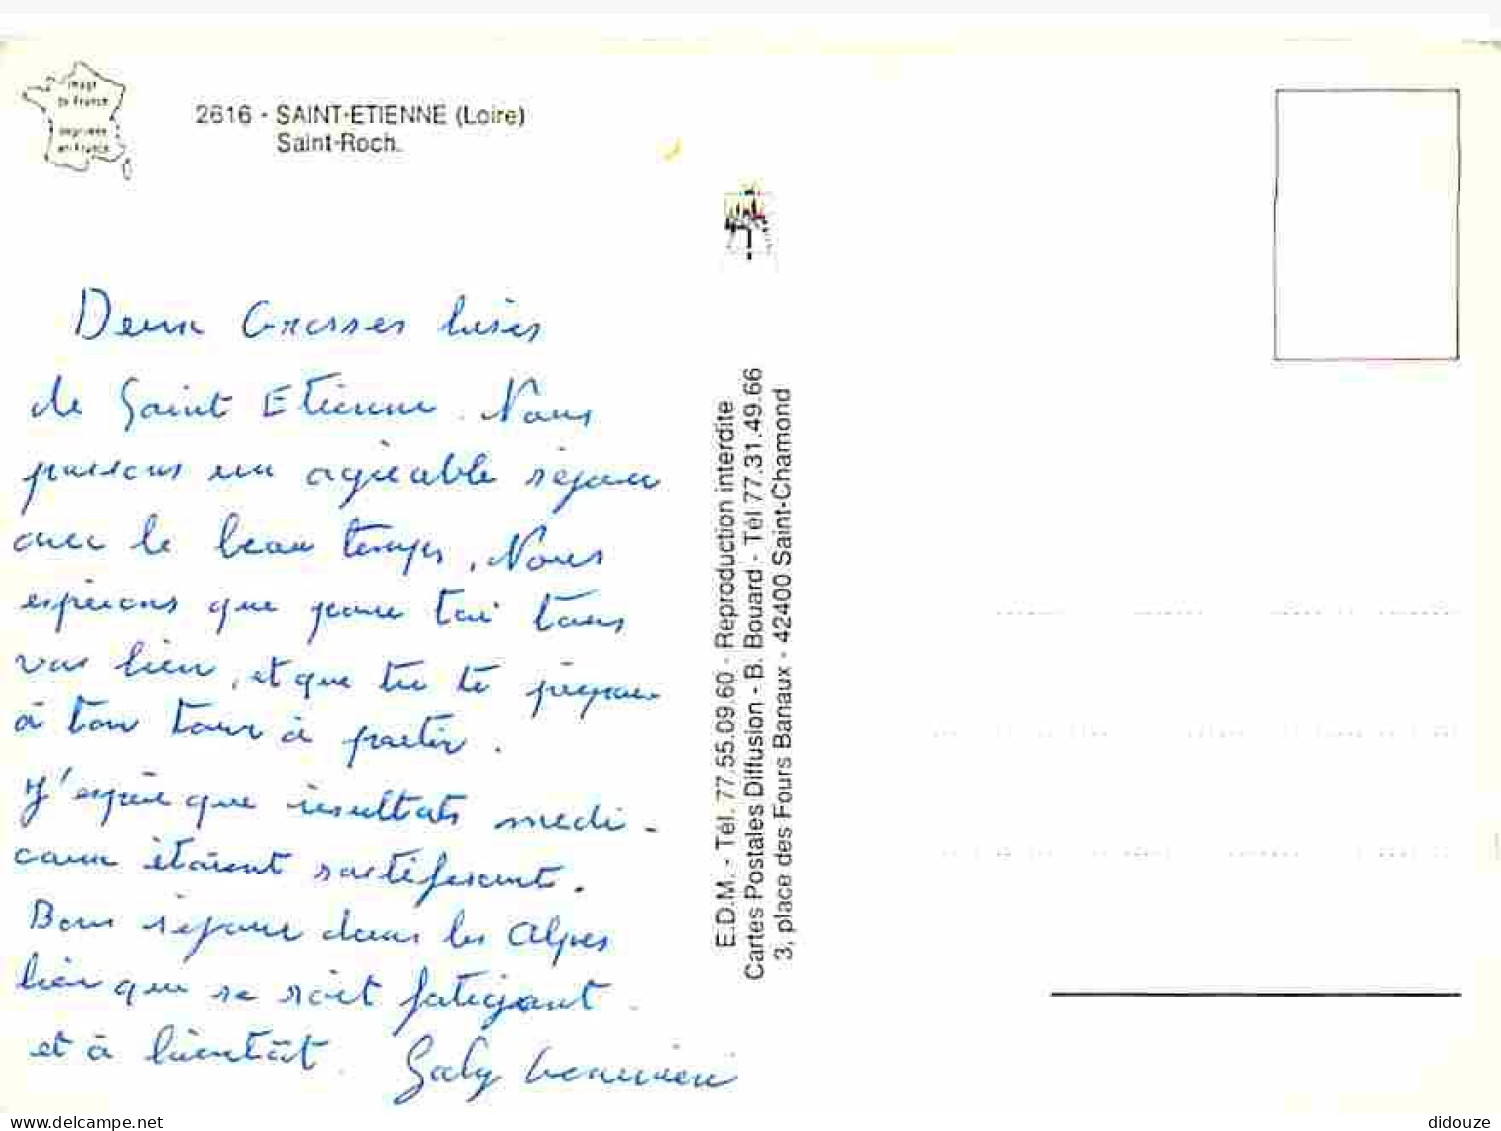 image
de France
imprimée
en France
2616 - SAINT-ETIENNE (Loire)
Saint-Roch.
Deux Grosses bises
de Saint Etienne. Nous
passons un agréable séjour
avec le beau temps. Nous
espérons que pour toi tous
vas bien, et que tu te prépare
à ton tour à partir.
J'espère que résultats medi-
caux étaient satisfesant.
Bons séjour dans les Alpes
bien que se soit fatigant
et à bientôt. Gaby Geneviève
E.D.M. - Tél. 77.55.09.60 - Reproduction interdite
Cartes Postales Diffusion - B. Bouard - Tél 77.31.49.66
3, place des Fours Banaux - 42400 Saint-Chamond
delcampe.net
didouze